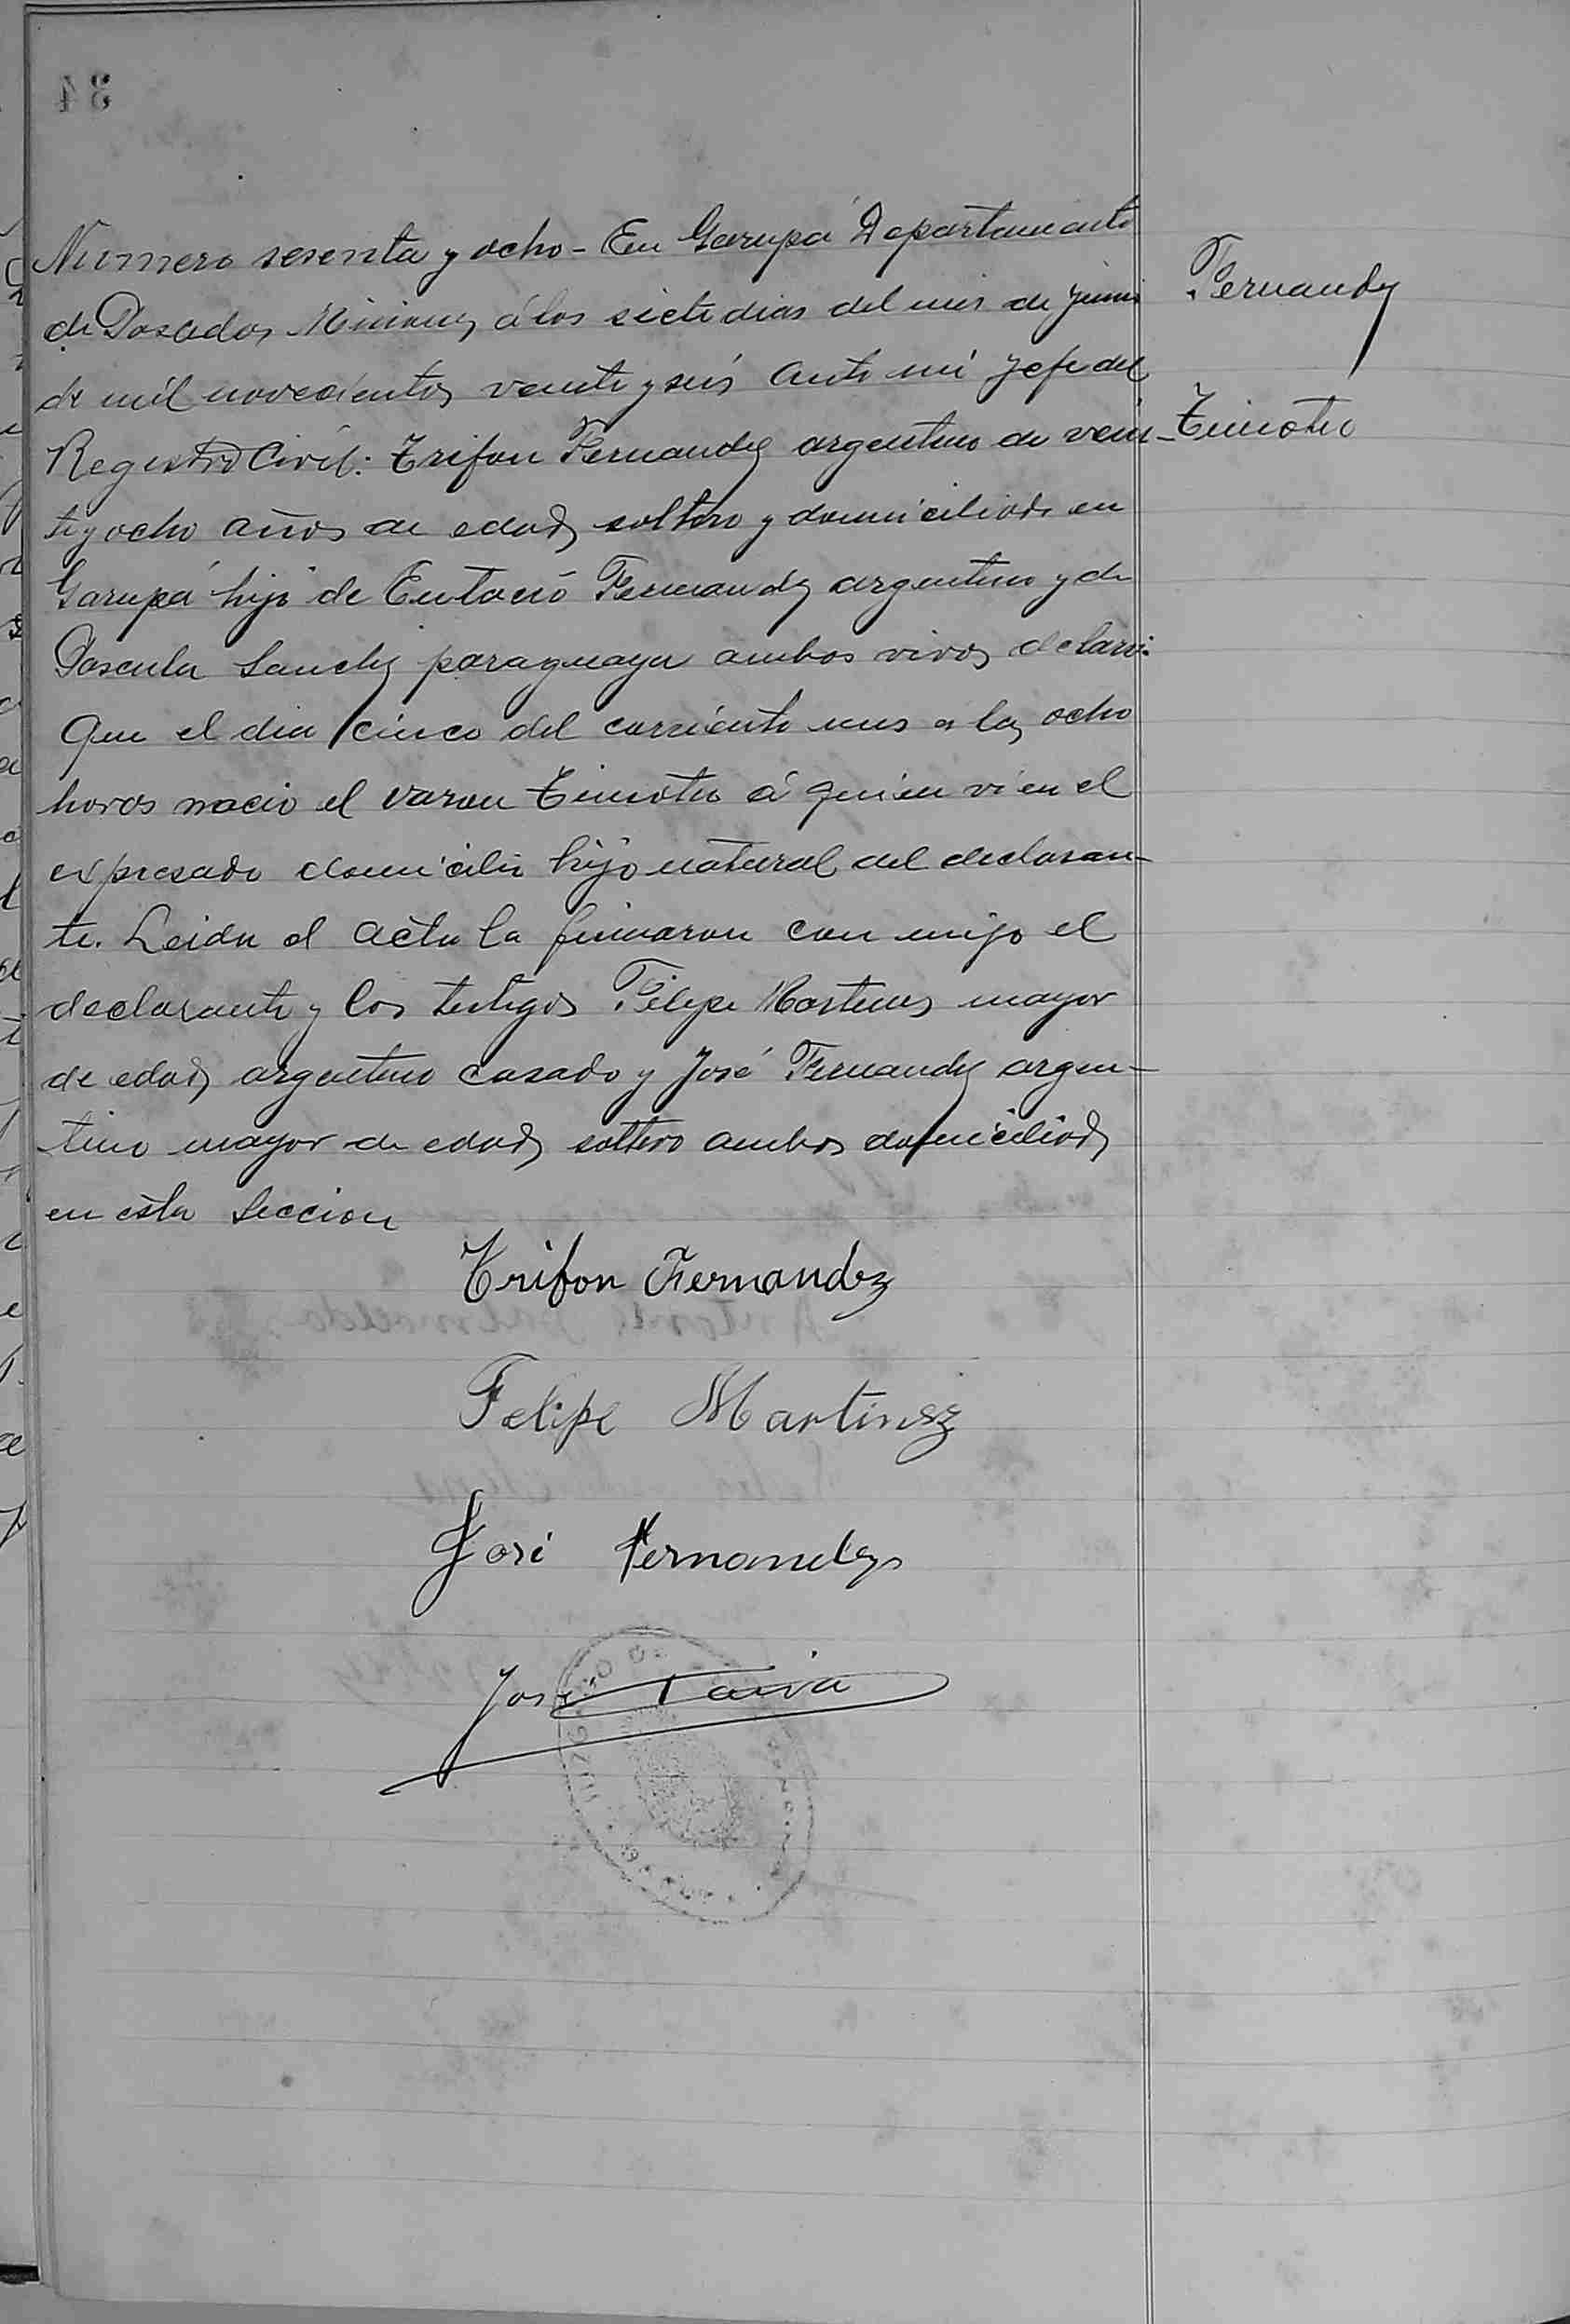 Numero sesenta y ocho - En Garupá Departamento
de Posadas, Misiones, á los siete dias del mes de junio
de mil novecientos veinte y seis ante mi Jefe del
Registro Civil: Trifon Fernandez argentino de vein-
te y ocho años de edad, soltero y domiciliado en
Garupá hijo de Eutacio Fernandez argentino y de
Pascula Sanchez paraguaya ambos vivos, declaró:
Que el dia cinco del corriente mes a las ocho
horas nacio el varon Timoteo á quien vi en el
expresado domicilio hijo natural del declaran-
te. Leida el acta la firmaron con migo el
declarante y los testigos Felipe Martines mayor
de edad, argentino casado y José Fernandez argen-
tino mayor de edad, soltero ambos domiciliados
en esta Seccion
Fernandez
Timoteo
Trifon Fernandez
Felipe Martinez
José Fernandez
José Paiva
34